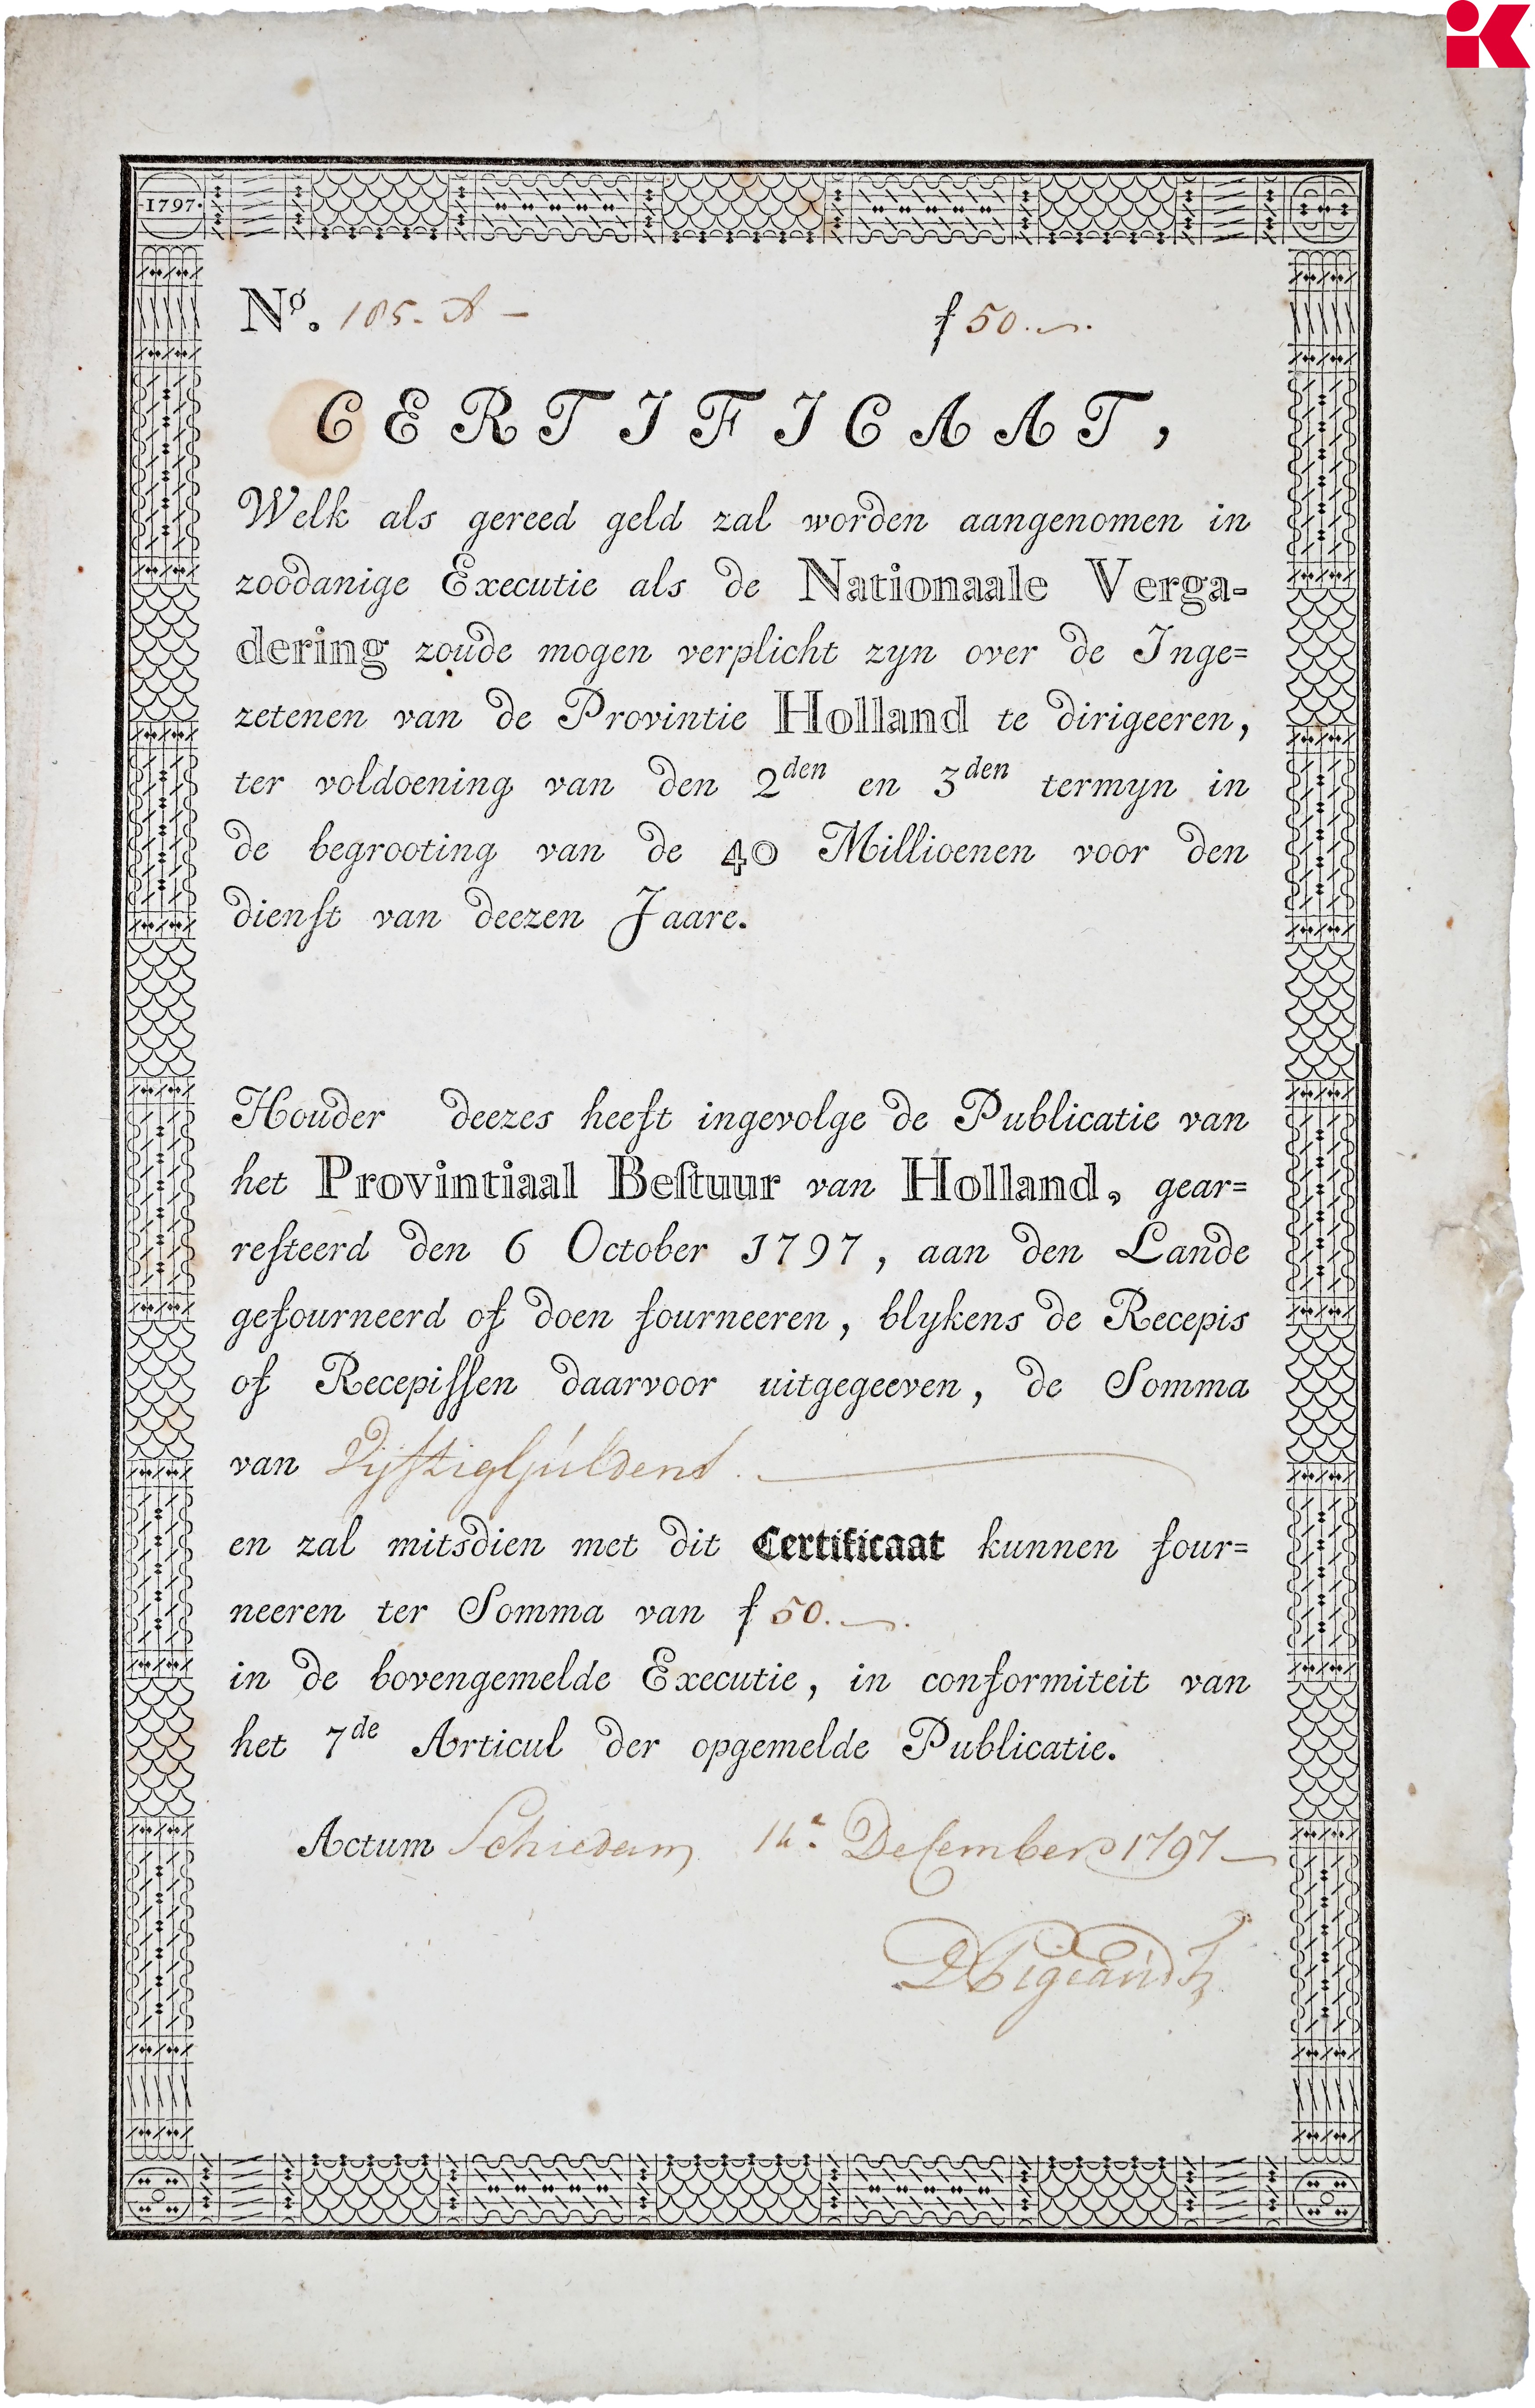 1797.
No. 185. A -
f 50.
CERTIFICAAT,
Welk als gereed geld zal worden aangenomen in
zoodanige Executie als de Nationaale Verga=
dering zoude mogen verplicht zyn over de Inge=
zetenen van de Provintie Holland te dirigeeren,
ter voldoening van den 2den en 3den termyn in
de begrooting van de 40 Millioenen voor den
dienſt van deezen Jaare.
Houder deezes heeft ingevolge de Publicatie van
het Provintiaal Beſtuur van Holland, gear=
reſteerd den 6 October 1797, aan den Lande
gefourneerd of doen fourneeren, blykens de Recepis
of Recepiſſen daarvoor uitgegeeven, de Somma
van Vijftig Guldens.
en zal mitsdien met dit Certificaat kunnen four=
neeren ter Somma van f 50.
in de bovengemelde Executie, in conformiteit van
het 7de Articul der opgemelde Publicatie.
Actum Schiedam December 1797